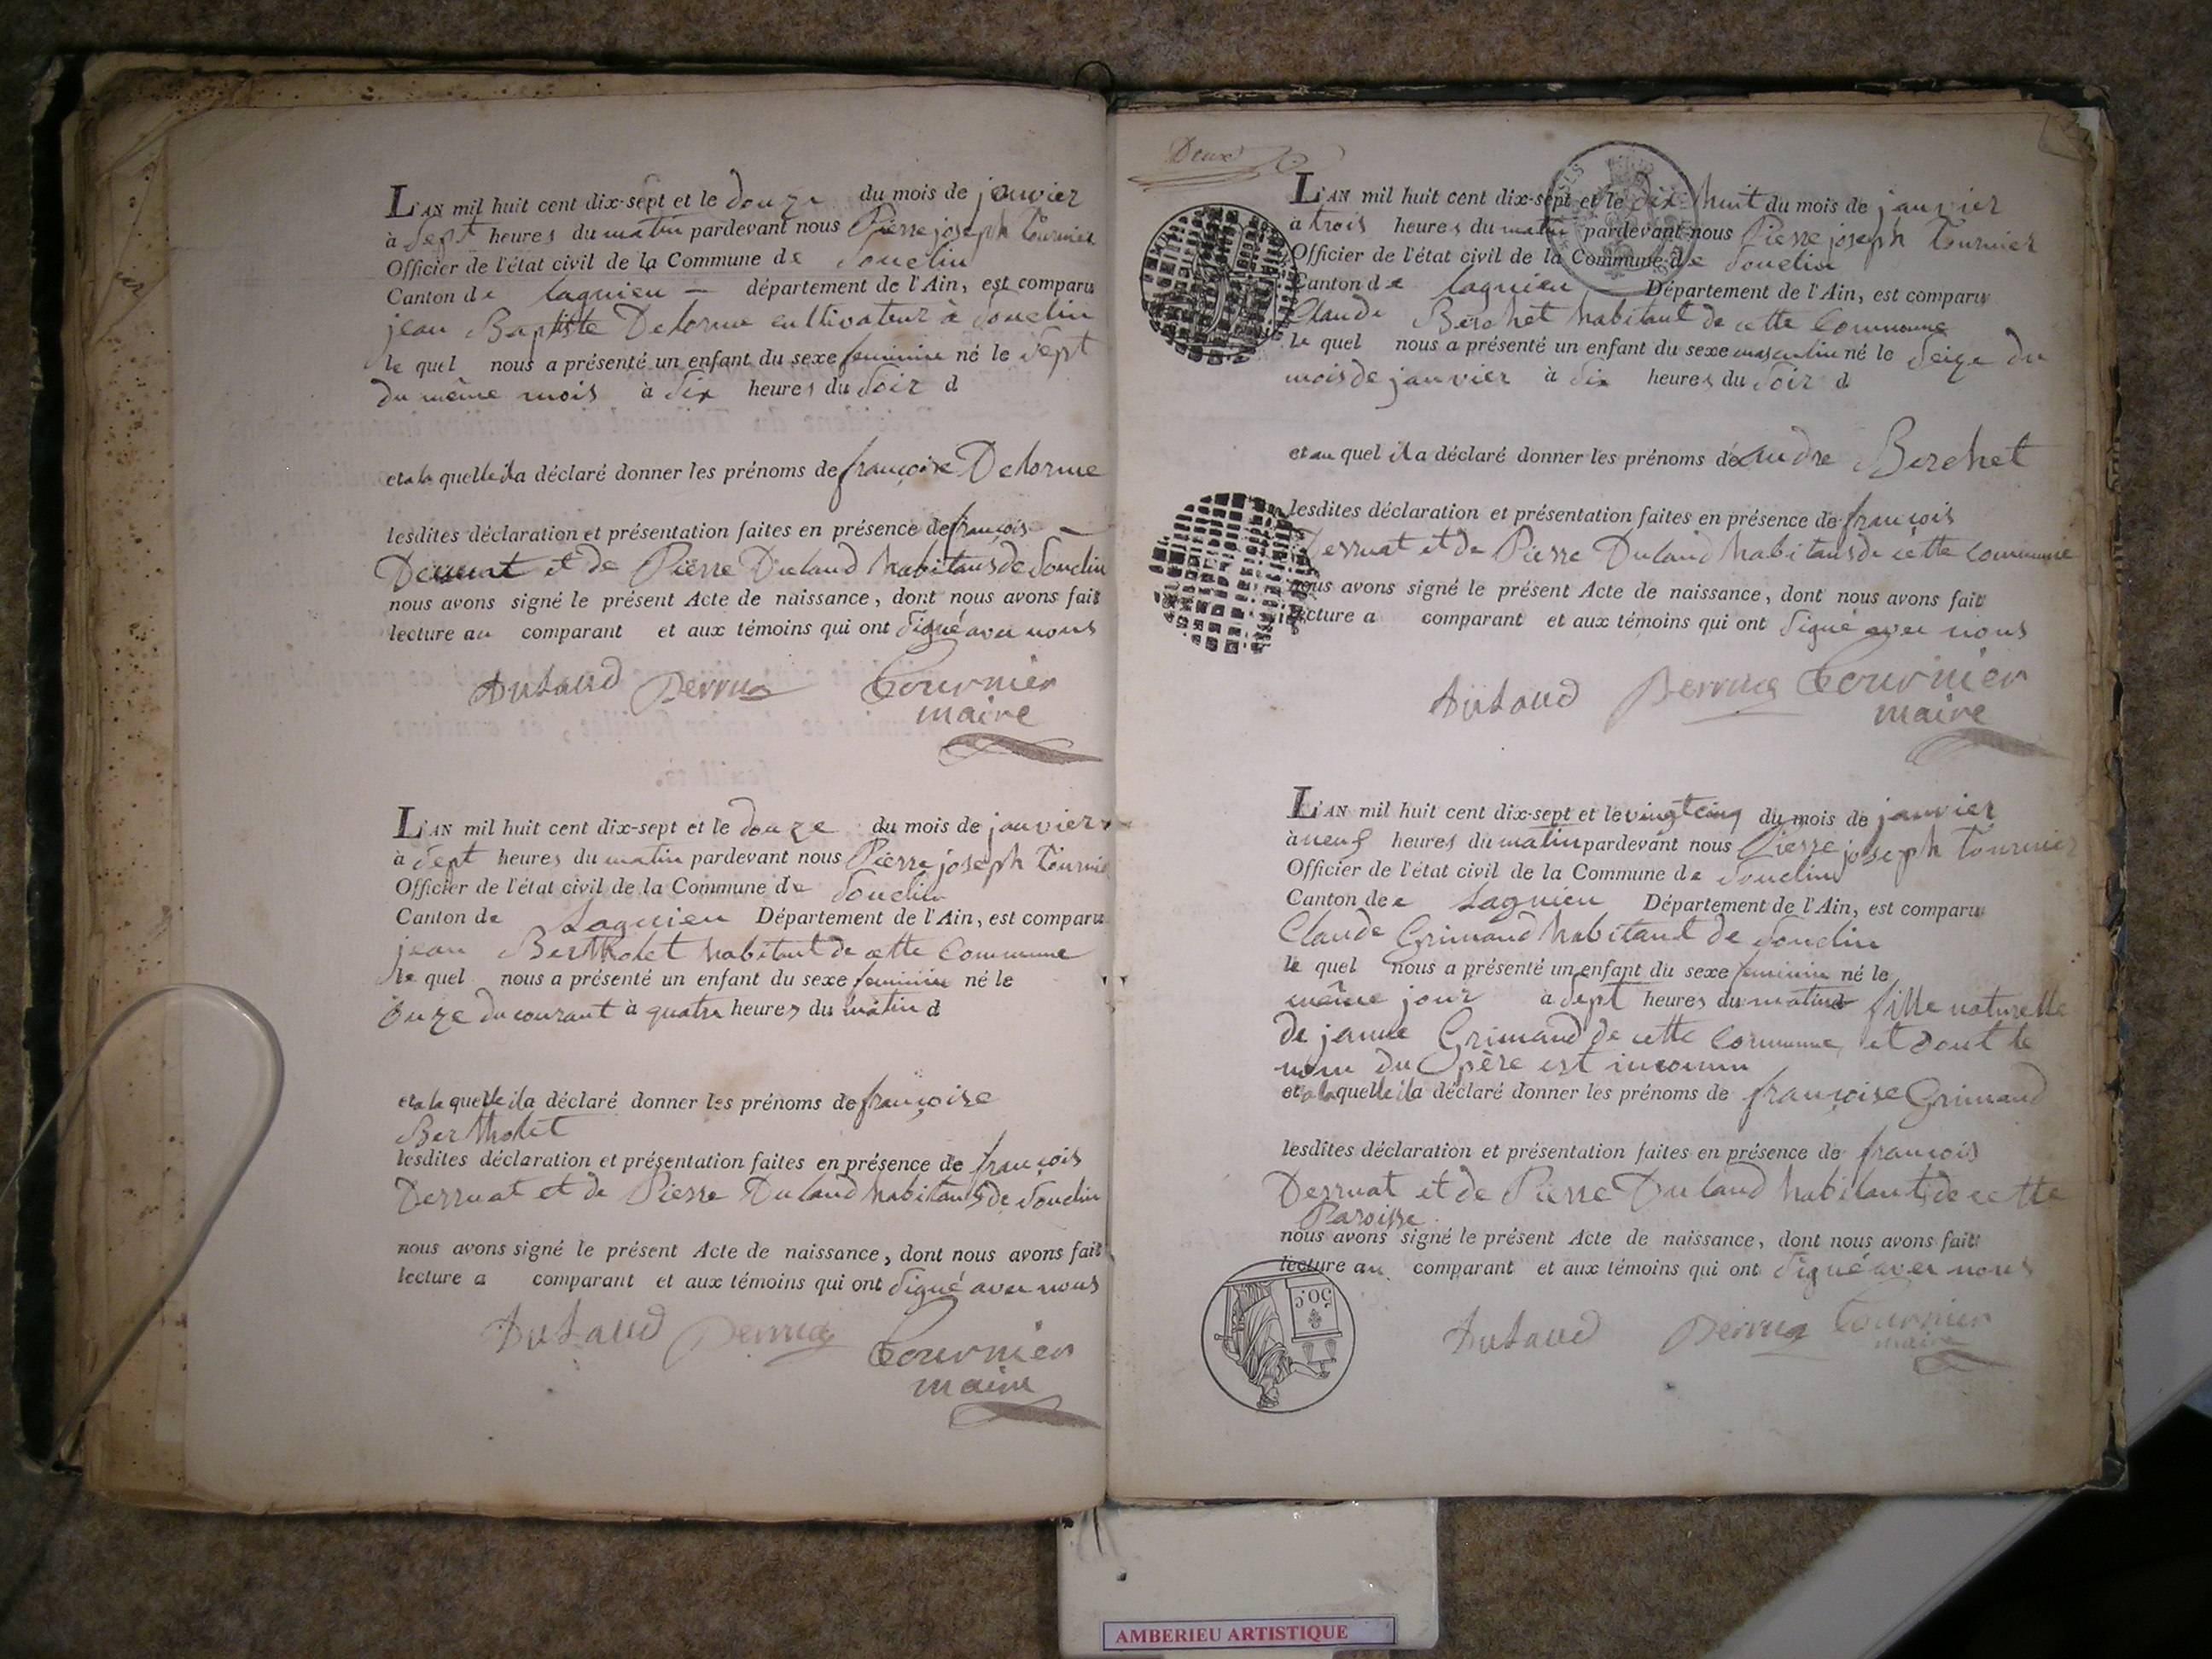 L'AN mil huit cent dix-sept et le douze du mois de janvier
à Sept heures du matin pardevant nous Pierre joseph Tournier
Officier de l'état civil de la Commune de Souclin
Canton de lagnieu — département de l'Ain, est comparu
jean Baptiste Delorme cultivateur à Souclin
le quel nous a présenté un enfant du sexe feminin né le Sept
du même mois à Six heures du Soir d
et a la quelle il a déclaré donner les prénoms de françoise Delorme
lesdites déclaration et présentation faites en présence de françois
Derruat et de Pierre Dulaud habitans de Souclin
nous avons signé le présent Acte de naissance, dont nous avons fait
lecture au comparant et aux témoins qui ont Signé avec nous
Dulaud Tournier
maire
L'AN mil huit cent dix-sept et le douze du mois de janvier
à Sept heures du matin pardevant nous Pierre joseph Tournie
Officier de l'état civil de la Commune de Souclin
Canton de Lagnieu Département de l'Ain, est comparu
jean Bertholet habitant de cette Commune
le quel nous a présenté un enfant du sexe feminin né le
onze du courant à quatre heures du matin d
et a la quelle il a déclaré donner les prénoms de françoise
Bertholet
lesdites déclaration et présentation faites en présence de françois
Derruat et de Pierre Dulaud habitans de Souclin
nous avons signé le présent Acte de naissance, dont nous avons fait
lecture a comparant et aux témoins qui ont Signé avec nous
Dulaud Tournier
maire
Deux
L'AN mil huit cent dix-sept et le dix huit du mois de janvier
à trois heures du matin pardevant nous Pierre joseph Tournier
Officier de l'état civil de la Commune de Souclin
Canton de lagnieu Département de l'Ain, est comparu
Claude Berchet habitant de cette Commune
le quel nous a présenté un enfant du sexe masculin né le Seize du
mois de janvier à Six heures du Soir d
et au quel il a déclaré donner les prénoms de andre Berchet
lesdites déclaration et présentation faites en présence de françois
Derruat et de Pierre Dulaud habitans de cette Commune
nous avons signé le présent Acte de naissance, dont nous avons fait
lecture a comparant et aux témoins qui ont Signé avec nous
Dulaud Tournier
maire
L'AN mil huit cent dix-sept et le vingt cinq du mois de janvier
à neuf heures du matin pardevant nous Pierre joseph Tournier
Officier de l'état civil de la Commune de Souclin
Canton de Lagnieu Département de l'Ain, est comparu
Claude Grimand habitant de Souclin
le quel nous a présenté un enfant du sexe feminin né le
même jour à Sept heures du matin fille naturelle
de janne Grimand de cette Commune et dont le
nom du père est inconnu
et a la quelle il a déclaré donner les prénoms de françoise Grimand
lesdites déclaration et présentation faites en présence de françois
Derruat et de Pierre Dulaud habitant de cette
Paroisse
nous avons signé le présent Acte de naissance, dont nous avons fait
lecture au comparant et aux témoins qui ont Signé avec nous
50c
Dulaud Tournier
maire
AMBERIEU ARTISTIQUE